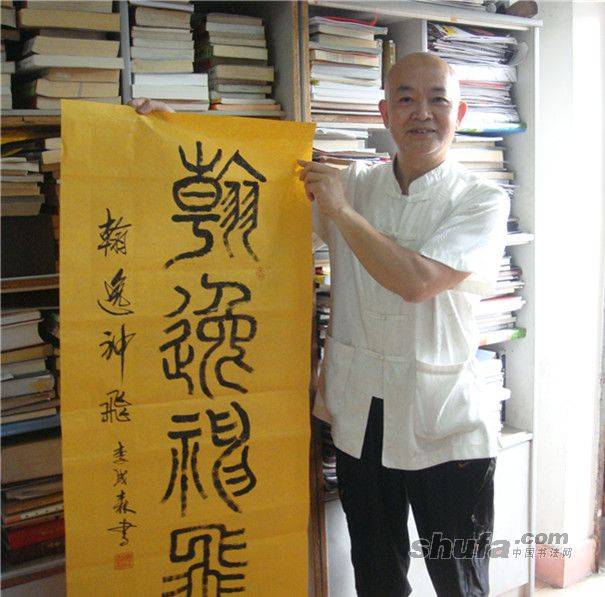 翰逸神飛
翰逸神飛
李成森書
shufa.com
中国书法网